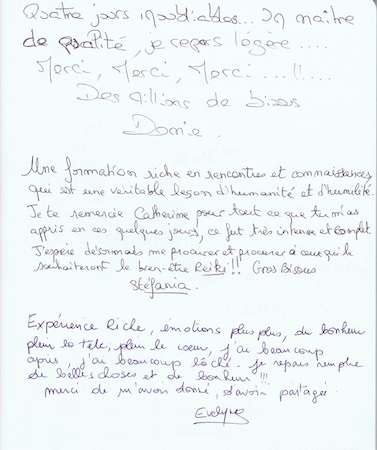 Quatre jours inoubliables... Un maître
de qualité, je repars légère....
Merci, Merci, Merci...!!....
Des Millions de bisous
Domie.
Une formation riche en rencontres et connaissances
qui est une véritable leçon d'humanité et d'humilité.
Je te remercie Catherine pour tout ce que tu m'as
appris en ces quelques jours, ce fut très intense et complet.
J'espère désormais me procurer et procurer à ceux qui le
souhaiteront le bien-être Reiki!! Gros Bisous
Stéfania.
Expérience Riche, émotions plus plus, du bonheur
plein la tête, plein le coeur, j'ai beaucoup
appris, j'ai beaucoup lâché. je repars remplie
de belles choses et de bonheur!!!
merci de m'avoir donné, d'avoir partagé
Evelyne